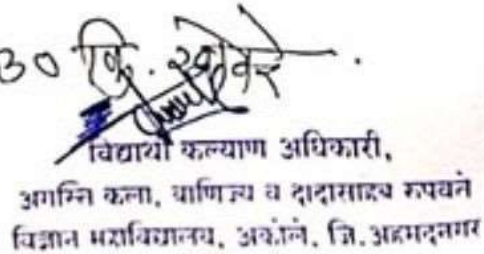 ३० कि.
विद्यार्थी कल्याण अधिकारी,
अगस्ति कला, वाणिज्य व दादासाहेब रुपवते
विज्ञान महाविद्यालय, अकोले, जि.अहमदनगर